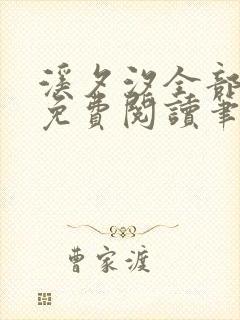 溪夕汐全部
免費閱讀筆
曹家渡